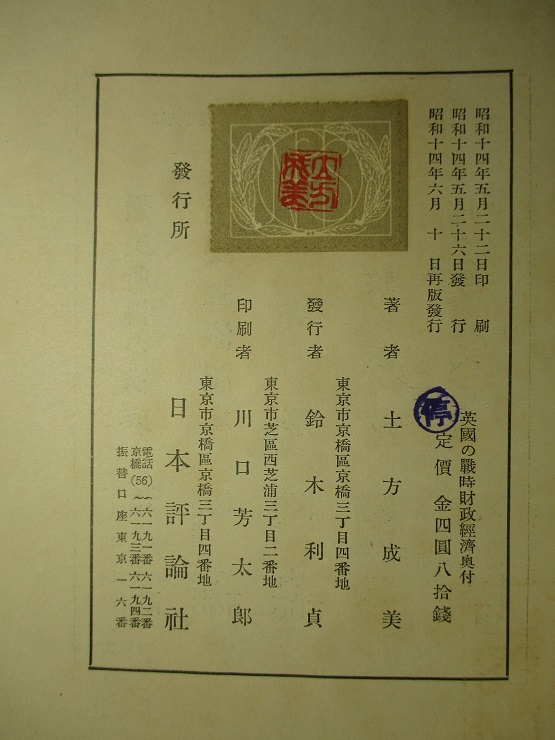 昭和十四年五月二十二日印刷
昭和十四年五月二十六日發行
昭和十四年六月十日再版發行
英國の戰時財政經濟奥付
停
定價金四圓八拾錢
土方成美
著者 土方成美
東京市京橋區京橋三丁目四番地
發行者 鈴木利貞
東京市芝區西芝浦三丁目二番地
印刷者 川口芳太郎
東京市京橋區京橋三丁目四番地
發行所 日本評論社
電話京橋(56) 六一九一番 六一九二番
六一九三番 六一九四番
振替口座東京一六番